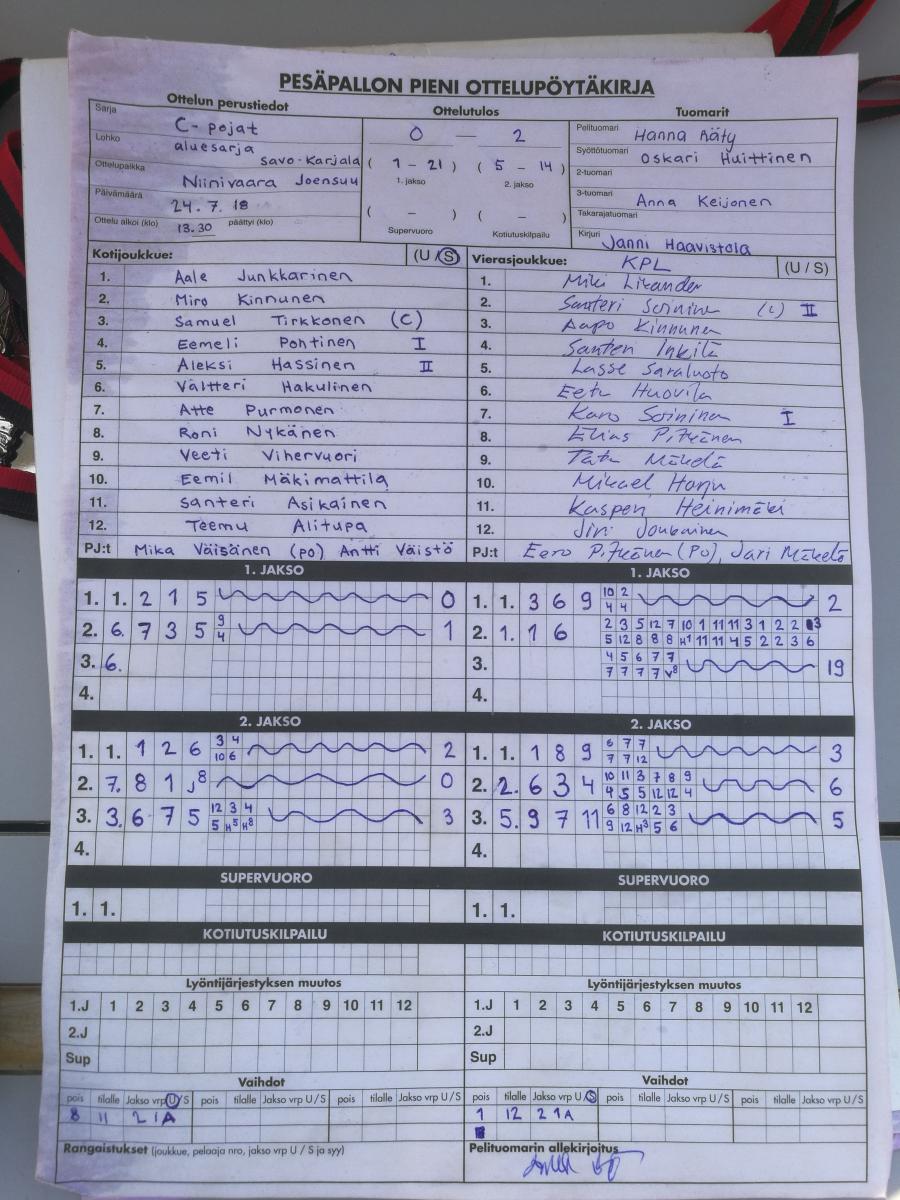 PESÄPALLON PIENI OTTELUPÖYTÄKIRJA
Ottelun perustiedot
Ottelutulos
Tuomarit
Sarja C-pojat
Lohko aluesarja
Savo-Karjala
Ottelupaikka Niinivaara Joensuu
Päivämäärä 24.7.18
Ottelu alkoi (klo) 13.30 päättyi (klo)
0 — 2
( 1 - 21 ) ( 5 - 14 )
1. jakso 2. jakso
( - ) ( - )
Supervuoro Kotiutuskilpailu
Pelituomari Hanna Räty
Syöttötuomari Oskari Huittinen
2-tuomari
3-tuomari Anna Keijonen
Takarajatuomari
Kirjuri Janni Haavistola
Kotijoukkue: (U / S)
1. Aale Junkkarinen
2. Miro Kinnunen
3. Samuel Tirkkonen (C)
4. Eemeli Pohtinen I
5. Aleksi Hassinen II
6. Valtteri Hakulinen
7. Atte Purmonen
8. Roni Nykänen
9. Veeti Vihervuori
10. Eemil Mäkimattila
11. Santeri Asikainen
12. Teemu Alitupa
PJ:t Mika Väisänen (po) Antti Väistö
Vierasjoukkue: KPL (U / S)
1. Miki
2. Santeri Soininen (C) II
3. Aapo Kinnunen
4. Santeri Inkilä
5. Lasse Saraluoto
6. Eetu Huovila
7. Karo Soininen I
8. Elias Pitkänen
9. Tatu Mäkelä
10. Mikael Harju
11. Kasperi Heinimäki
12. Jiri Joukainen
PJ:t Eero Pitkänen (Po), Jari Mäkelä
1. JAKSO
1. 1. 2 1 5 0
2. 6. 7 3 5 9 1
4
3. 6.
4.
1. JAKSO
1. 1. 3 6 9 10 2 2
4 4
2. 1. 1 6 2 3 5 12 7 10 1 11 11 3 1 2 2 3
5 12 8 8 8 H1 11 11 4 5 2 2 3 6
3. 4 5 6 7 7 19
7 7 7 7 V8
4.
2. JAKSO
1. 1. 1 2 6 3 4 2
10 6
2. 7. 8 1 J8 0
3. 3. 6 7 5 12 3 4 3
5 H5 H8
4.
2. JAKSO
1. 1. 1 8 9 6 7 7 3
7 7 12
2. 2. 6 3 4 10 11 3 7 8 9 6
4 5 5 12 12 4
3. 5. 9 7 11 6 8 12 2 3 5
9 12 H3 5 6
4.
SUPERVUORO
1. 1.
SUPERVUORO
1. 1.
KOTIUTUSKILPAILU
KOTIUTUSKILPAILU
Lyöntijärjestyksen muutos
1.J 1 2 3 4 5 6 7 8 9 10 11 12
2.J
Sup
Lyöntijärjestyksen muutos
1.J 1 2 3 4 5 6 7 8 9 10 11 12
2.J
Sup
Vaihdot
pois tilalle Jakso vrp U/S pois tilalle Jakso vrp U/S pois tilalle Jakso vrp U/S
8 11 2 1A
Vaihdot
pois tilalle Jakso vrp U/S pois tilalle Jakso vrp U/S pois tilalle Jakso vrp U/S
1 12 2 1A
Rangaistukset (joukkue, pelaaja nro, jakso vrp U / S ja syy)
Pelituomarin allekirjoitus